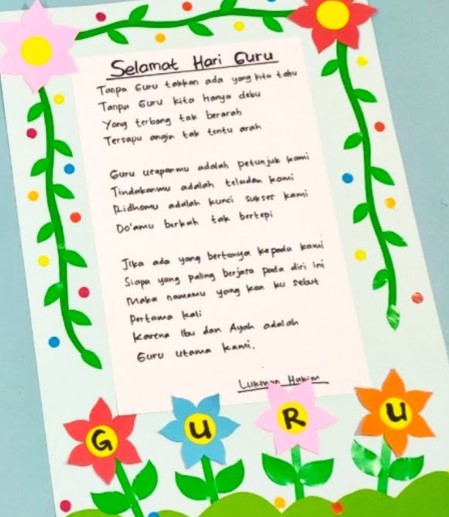 Selamat Hari Guru
Tanpa Guru takkan ada yang kita tahu
Tanpa Guru kita hanya debu
Yang terbang tak berarah
Tersapu angin tak tentu arah
Guru ucapanmu adalah petunjuk kami
Tindakanmu adalah teladan kami
Ridhomu adalah kunci sukses kami
Do'amu berkah tak bertepi
Jika ada yang bertanya kepada kami
Siapa yang paling berjasa pada diri ini
Maka namamu yang kan ku sebut
Pertama kali
Karena Ibu dan Ayah adalah
Guru utama kami.
Lukman Hakim
GURU